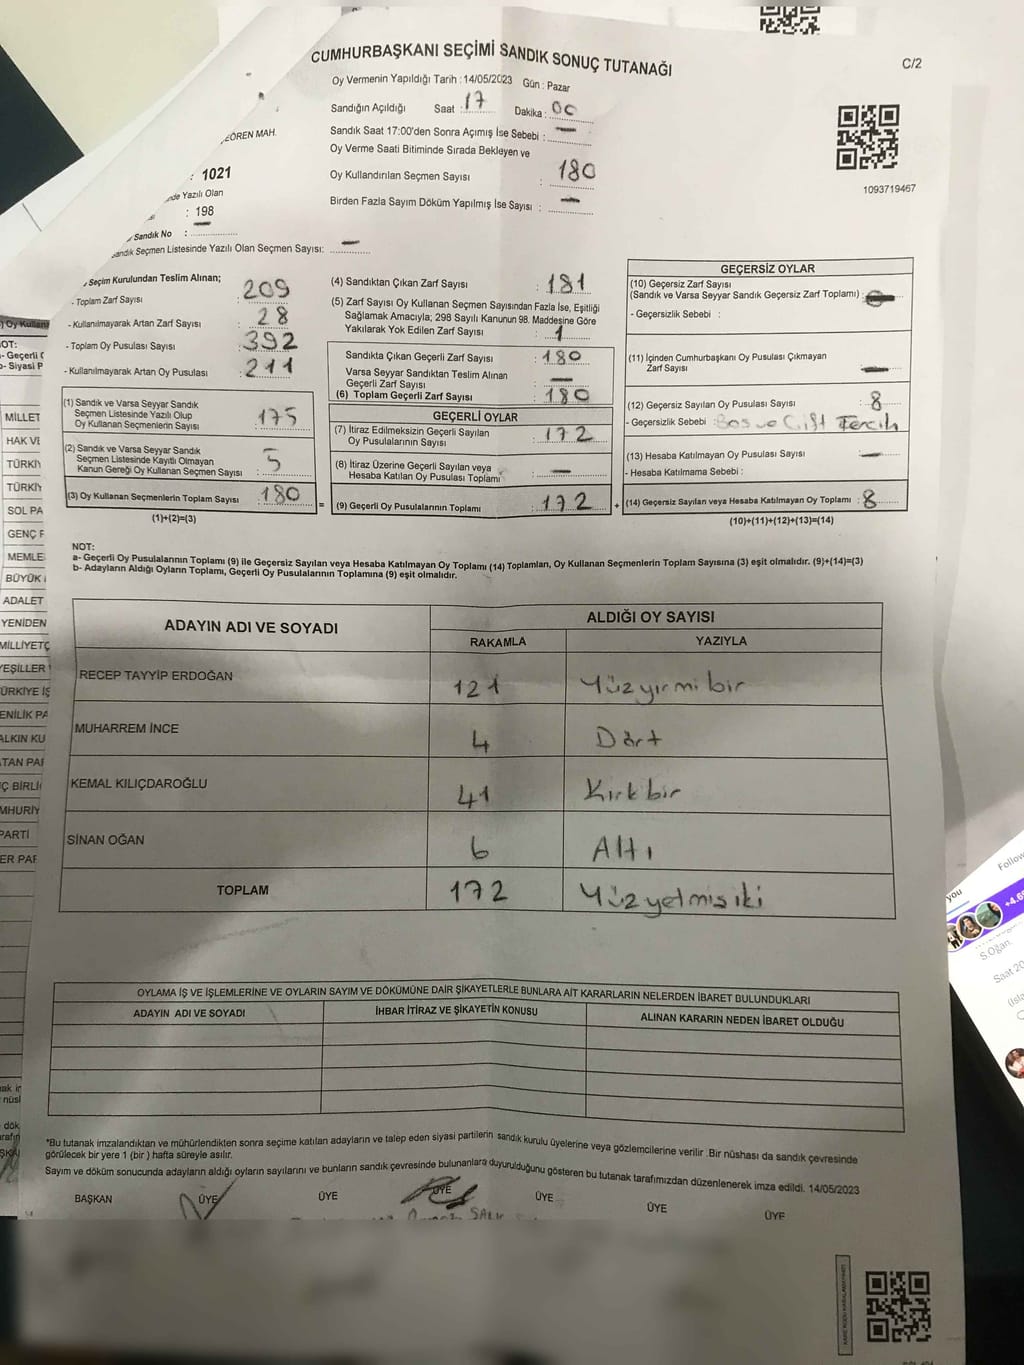 CUMHURBAŞKANI SEÇİMİ SANDIK SONUÇ TUTANAĞI
C/2
Oy Vermenin Yapıldığı Tarih : 14/05/2023 Gün : Pazar
Sandığın Açıldığı Saat : 17 Dakika : 00
Sandık Saat 17:00'den Sonra Açımış İse Sebebi : —
Oy Verme Saati Bitiminde Sırada Bekleyen ve
Oy Kullandırılan Seçmen Sayısı : 180
Birden Fazla Sayım Döküm Yapılmış İse Sayısı : —
1093719467
EÖREN MAH.
: 1021
nde Yazılı Olan
: 198
Sandık No : —
andık Seçmen Listesinde Yazılı Olan Seçmen Sayısı: —
Seçim Kurulundan Teslim Alınan;
- Toplam Zarf Sayısı : 209
- Kullanılmayarak Artan Zarf Sayısı : 28
- Toplam Oy Pusulası Sayısı : 392
- Kullanılmayarak Artan Oy Pusulası : 211
(1) Sandık ve Varsa Seyyar Sandık
Seçmen Listesinde Yazılı Olup
Oy Kullanan Seçmenlerin Sayısı : 175
(2) Sandık ve Varsa Seyyar Sandık
Seçmen Listesinde Kayıtlı Olmayan
Kanun Gereği Oy Kullanan Seçmen Sayısı : 5
(3) Oy Kullanan Seçmenlerin Toplam Sayısı : 180
(1)+(2)=(3)
(4) Sandıktan Çıkan Zarf Sayısı : 181
(5) Zarf Sayısı Oy Kullanan Seçmen Sayısından Fazla İse, Eşitliği
Sağlamak Amacıyla; 298 Sayılı Kanunun 98. Maddesine Göre
Yakılarak Yok Edilen Zarf Sayısı : 1
Sandıkta Çıkan Geçerli Zarf Sayısı : 180
Varsa Seyyar Sandıktan Teslim Alınan
Geçerli Zarf Sayısı : —
(6) Toplam Geçerli Zarf Sayısı : 180
GEÇERLİ OYLAR
(7) İtiraz Edilmeksizin Geçerli Sayılan
Oy Pusulalarının Sayısı : 172
(8) İtiraz Üzerine Geçerli Sayılan veya
Hesaba Katılan Oy Pusulası Toplamı : —
= (9) Geçerli Oy Pusulalarının Toplamı : 172 +
GEÇERSİZ OYLAR
(10) Geçersiz Zarf Sayısı
(Sandık ve Varsa Seyyar Sandık Geçersiz Zarf Toplamı) :
- Geçersizlik Sebebi :
(11) İçinden Cumhurbaşkanı Oy Pusulası Çıkmayan
Zarf Sayısı : —
(12) Geçersiz Sayılan Oy Pusulası Sayısı : 8
- Geçersizlik Sebebi : Boş ve Çift Tercih
(13) Hesaba Katılmayan Oy Pusulası Sayısı : —
- Hesaba Katılmama Sebebi :
(14) Geçersiz Sayılan veya Hesaba Katılmayan Oy Toplamı : 8
(10)+(11)+(12)+(13)=(14)
NOT:
a- Geçerli Oy Pusulalarının Toplamı (9) ile Geçersiz Sayılan veya Hesaba Katılmayan Oy Toplamı (14) Toplamları, Oy Kullanan Seçmenlerin Toplam Sayısına (3) eşit olmalıdır. (9)+(14)=(3)
b- Adayların Aldığı Oyların Toplamı, Geçerli Oy Pusulalarının Toplamına (9) eşit olmalıdır.
ADAYIN ADI VE SOYADI
ALDIĞI OY SAYISI
RAKAMLA YAZIYLA
RECEP TAYYİP ERDOĞAN 121 Yüzyirmibir
MUHARREM İNCE 4 Dört
KEMAL KILIÇDAROĞLU 41 Kırkbir
SİNAN OĞAN 6 Altı
TOPLAM 172 Yüzyetmişiki
OYLAMA İŞ VE İŞLEMLERİNE VE OYLARIN SAYIM VE DÖKÜMÜNE DAİR ŞİKAYETLERLE BUNLARA AİT KARARLARIN NELERDEN İBARET BULUNDUKLARI
ADAYIN ADI VE SOYADI İHBAR İTİRAZ VE ŞİKAYETİN KONUSU ALINAN KARARIN NEDEN İBARET OLDUĞU
*Bu tutanak imzalandıktan ve mühürlendikten sonra seçime katılan adayların ve talep eden siyasi partilerin sandık kurulu üyelerine veya gözlemcilerine verilir .Bir nüshası da sandık çevresinde
görülecek bir yere 1 (bir ) hafta süreyle asılır.
Sayım ve döküm sonucunda adayların aldığı oyların sayılarını ve bunların sandık çevresinde bulunanlara duyurulduğunu gösteren bu tutanak tarafımızdan düzenlenerek imza edildi. 14/05/2023
BAŞKAN ÜYE ÜYE ÜYE ÜYE ÜYE ÜYE
) Oy Kullana
OT:
MİLLET
HAK VE
TÜRKİY
TÜRKİY
SOL PA
GENÇ P
MEMLE
BÜYÜK
ADALET
YENİDEN
MİLLİYETÇ
YEŞİLLER
ÜRKİYE İŞ
ENİLİK PA
ALKIN KU
TAN PAI
Ç BİRLİ
MHURİY
PARTİ
ER PAR
you
Follow
+4.6
S.Oğan,
Saat 20